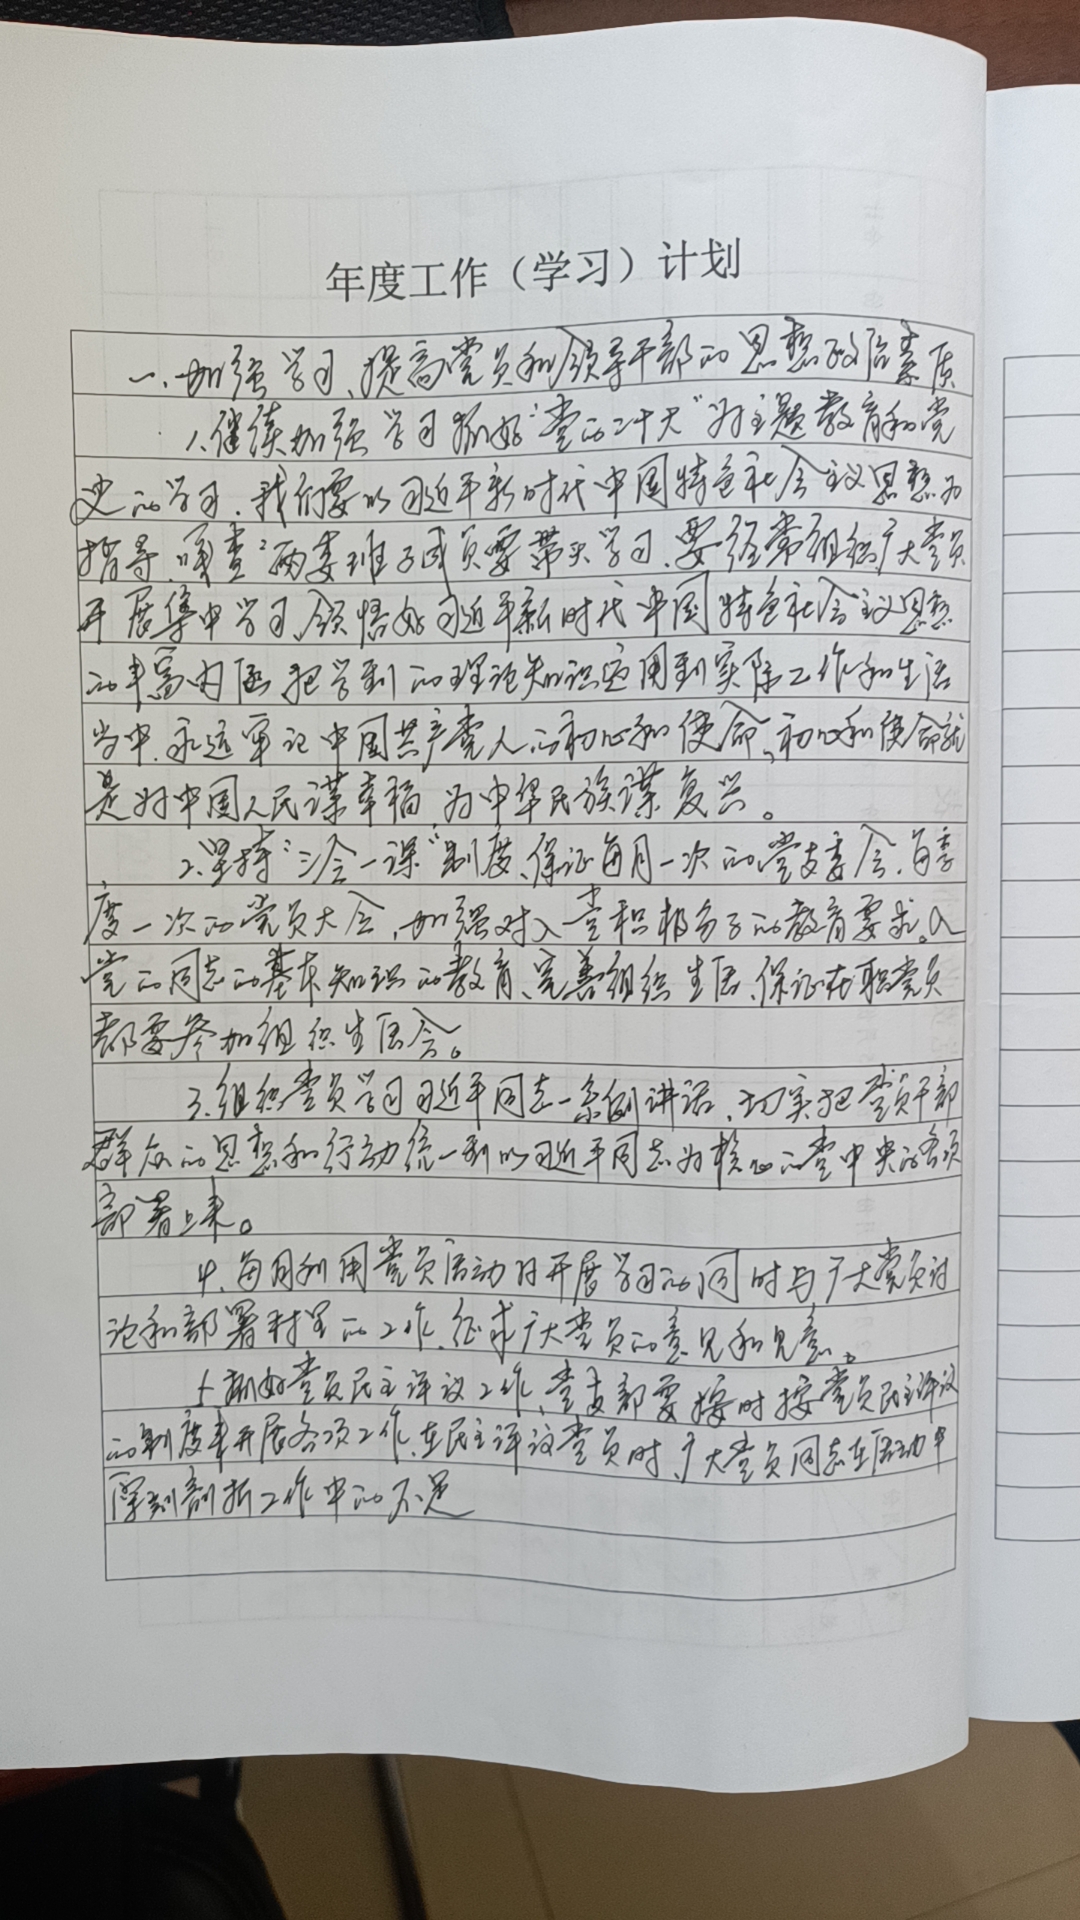 年度工作（学习）计划
一、加强学习、提高党员和领导干部的思想政治素质
1、继续加强学习抓好“党的二十大”为主题教育和党
史的学习，我们要以习近平新时代中国特色社会主义思想为
指导，“两委班子成员要带头学习，要经常组织广大党员
开展集中学习，领悟好习近平新时代中国特色社会主义思想
的丰富内涵把学到的理论知识运用到实际工作和生活
当中，永远牢记中国共产党人的初心和使命，初心和使命就
是为中国人民谋幸福，为中华民族谋复兴。
2、坚持“三会一课”制度，保证每月一次的党支委会，每季
度一次的党员大会，加强对入党积极分子的教育要求入
党的同志的基本知识的教育，完善组织生活，保证在职党员
都要参加组织生活会。
3、组织党员学习习近平同志一系例讲话，切实把党员干部
群众的思想和行动统一到以习近平同志为核心的党中央的各项
部署上来。
4、每月利用党员活动日开展学习的同时与广大党员讨
论和部署村里的工作，征求广大党员的意见和见意。
5、抓好党员民主评议工作，党支部要按时按党员民主评议
的制度来开展各项工作，在民主评议党员时，广大党员同志在活动中
深刻剖析工作中的不足